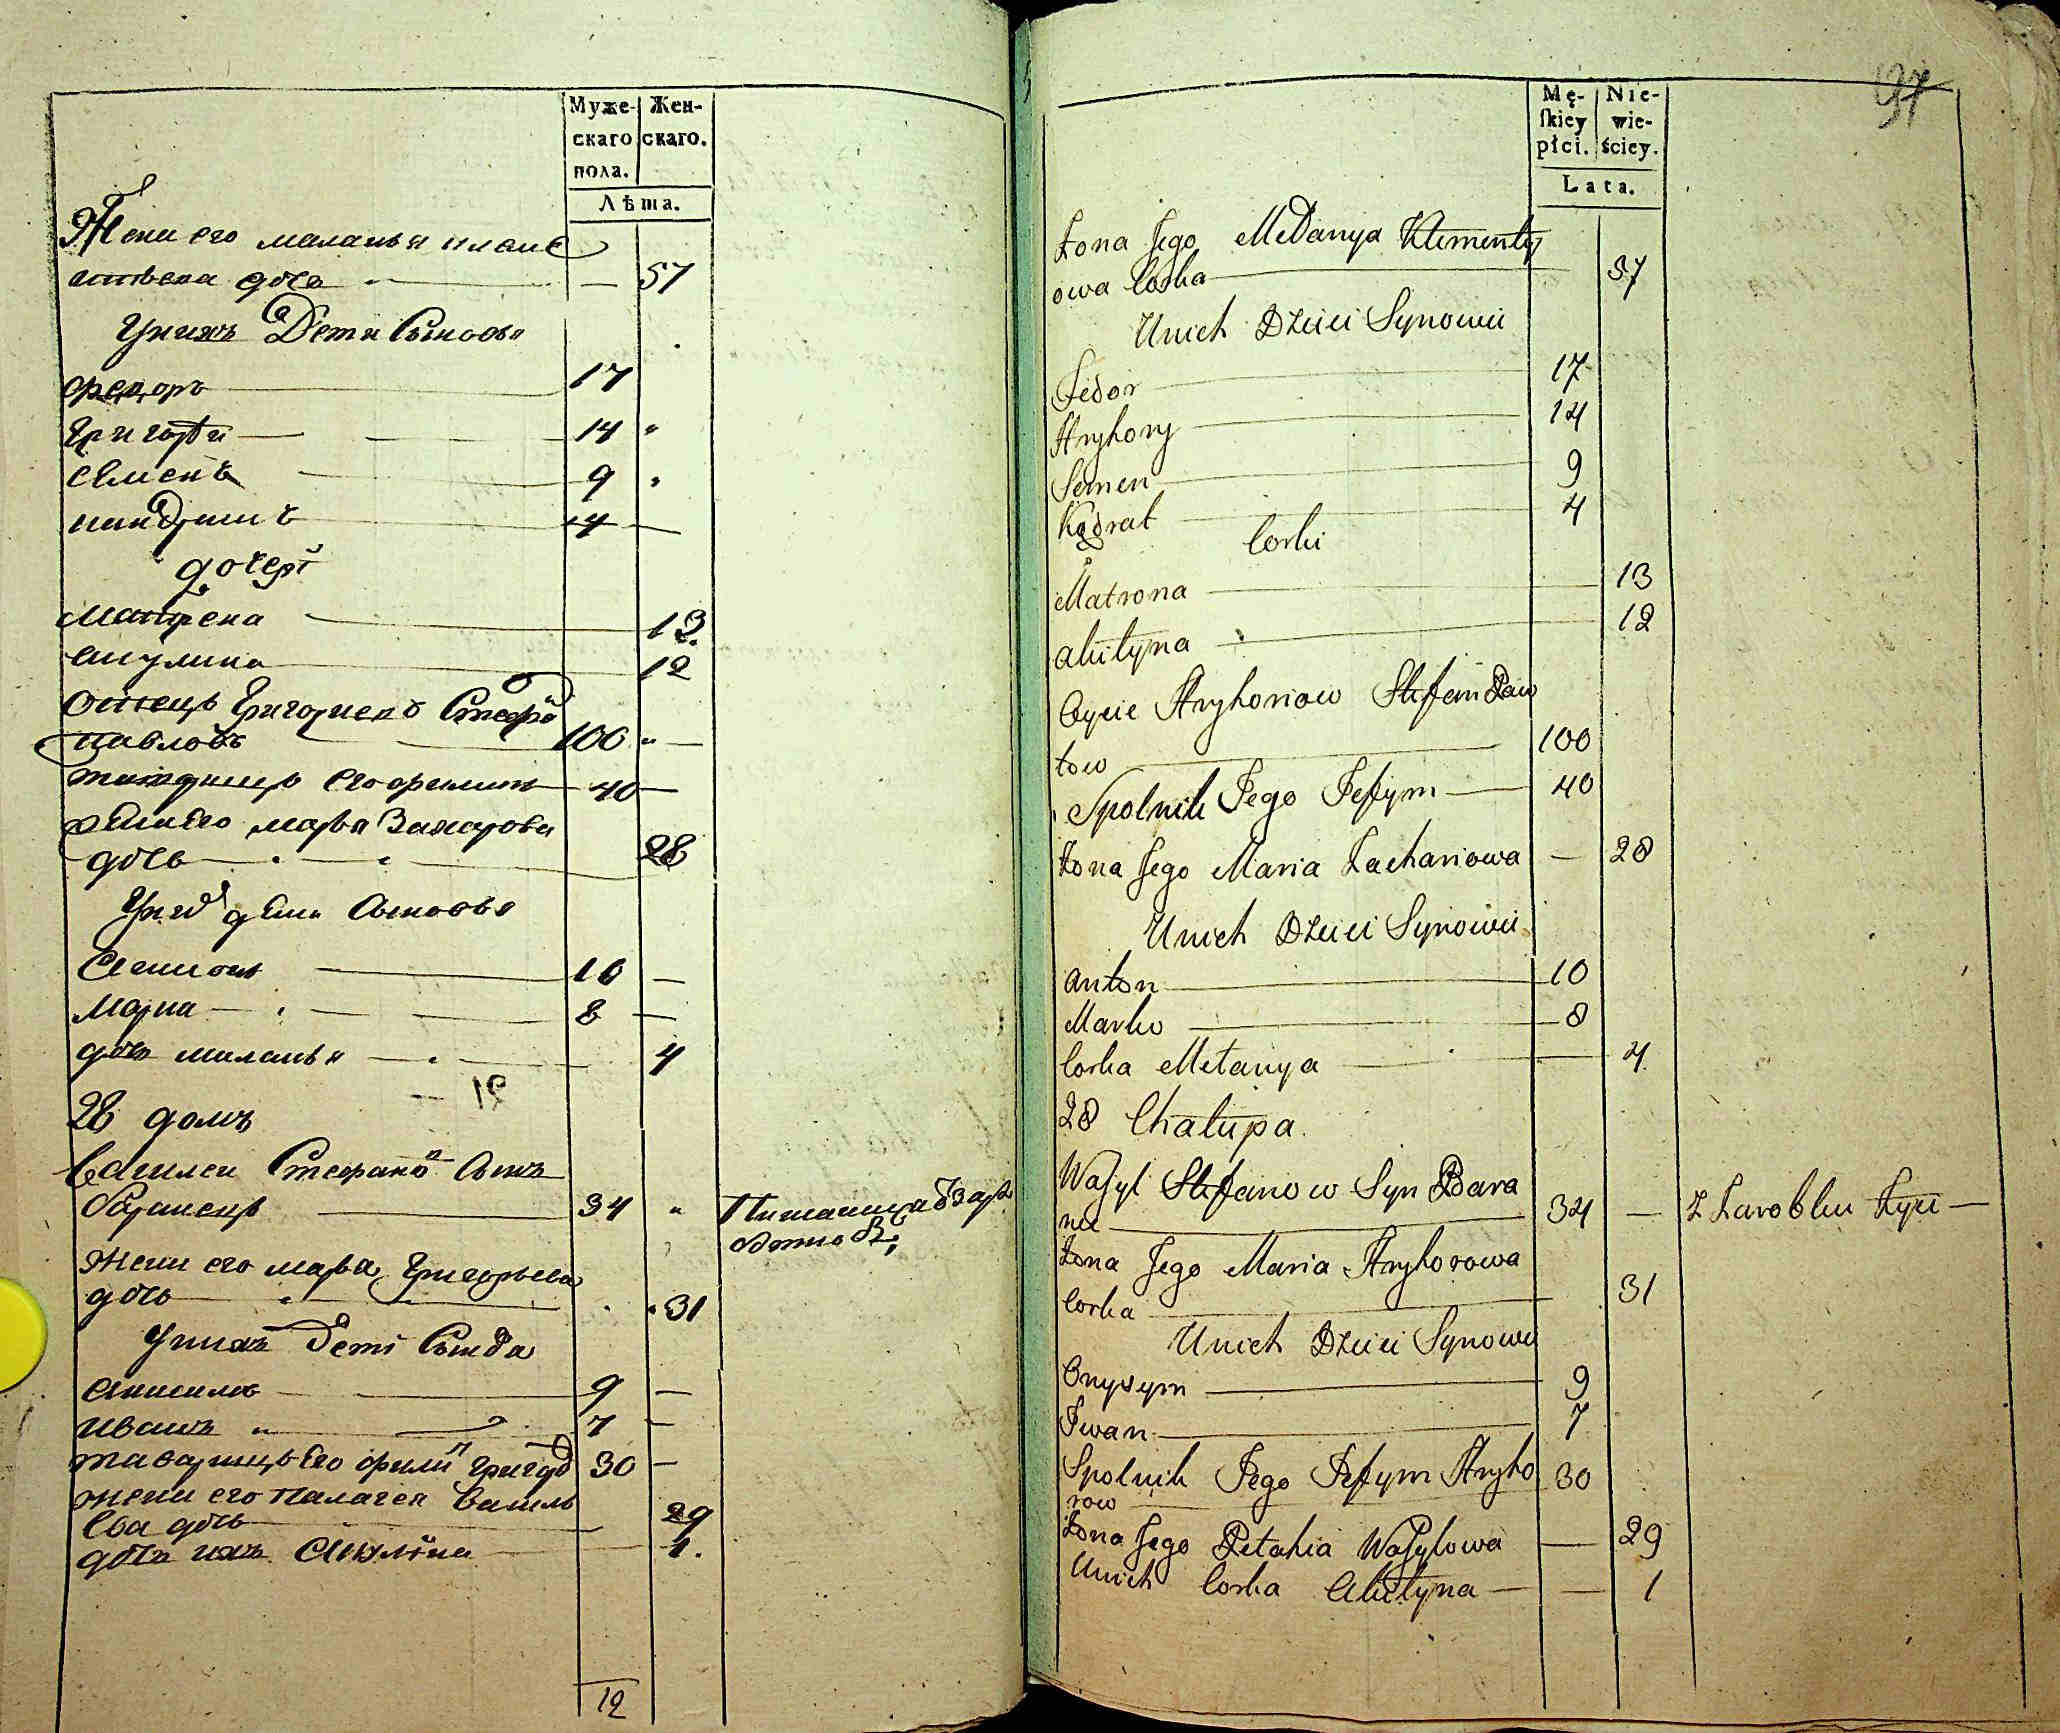 Муже-
скаго
пола.
Жен-
скаго.
Лѣта.
Жена его маланья клеме
нтьева дочь 57
У нихъ Дети Сыновья
Федоръ 17
Григорѣй 14
Семенъ 9
кандратъ 4
дочери
Матрена 13
акулина 12
Отецъ Григорьевъ Стефанъ
павловъ 100
товарищъ его ефимъ 40
жена его марья Захарова
дочь 28
У них дети Сыновья
Антонъ 10
Марка 8
дочь маланья 4
91
28 домъ
Василей Стефановъ Сынъ
баранецъ 34
Питается Зара
боткой
Жена его марья Григорьева
дочь 31
У нихъ Дети Сынова
Анисимъ 9
иванъ 7
таварищъ его ефимъ Григоръ 30
жена его палагея Василь
ева дочь 29
дочь ихъ Акулина 1.
12
97
Mę-
skiey
płci.
Nie-
wie-
ściey.
Lata.
Żona Jego Mełanya Klementy
owa Corka 57
Unich Dzieci Synowie
Fedor 17
Hryhory 14
Semen 9
Kądrat 4
Corki
Matrona 13
akulyna 12
Oycie Hryhoriow Stefan Paw
łow 100
Spolnik Jego Jefym 40
Żona Jego Maria Zachariowa 28
Unich Dzieci Synowie
anton 10
Marko 8
Corka Mełanya 4
28 Chałupa.
Wasyl Stefanow Syn Bara
nie 34 Z Zarobku Żyie
Żona Jego Maria Hryhorowa
Corka 31
Unich Dzieci Synowie
Onysym 9
Iwan 7
Spolnik Jego Jefym Hryho
row 30
Żona Jego Pełahia Wasylowa 29
Unich Corka Akulyna 1